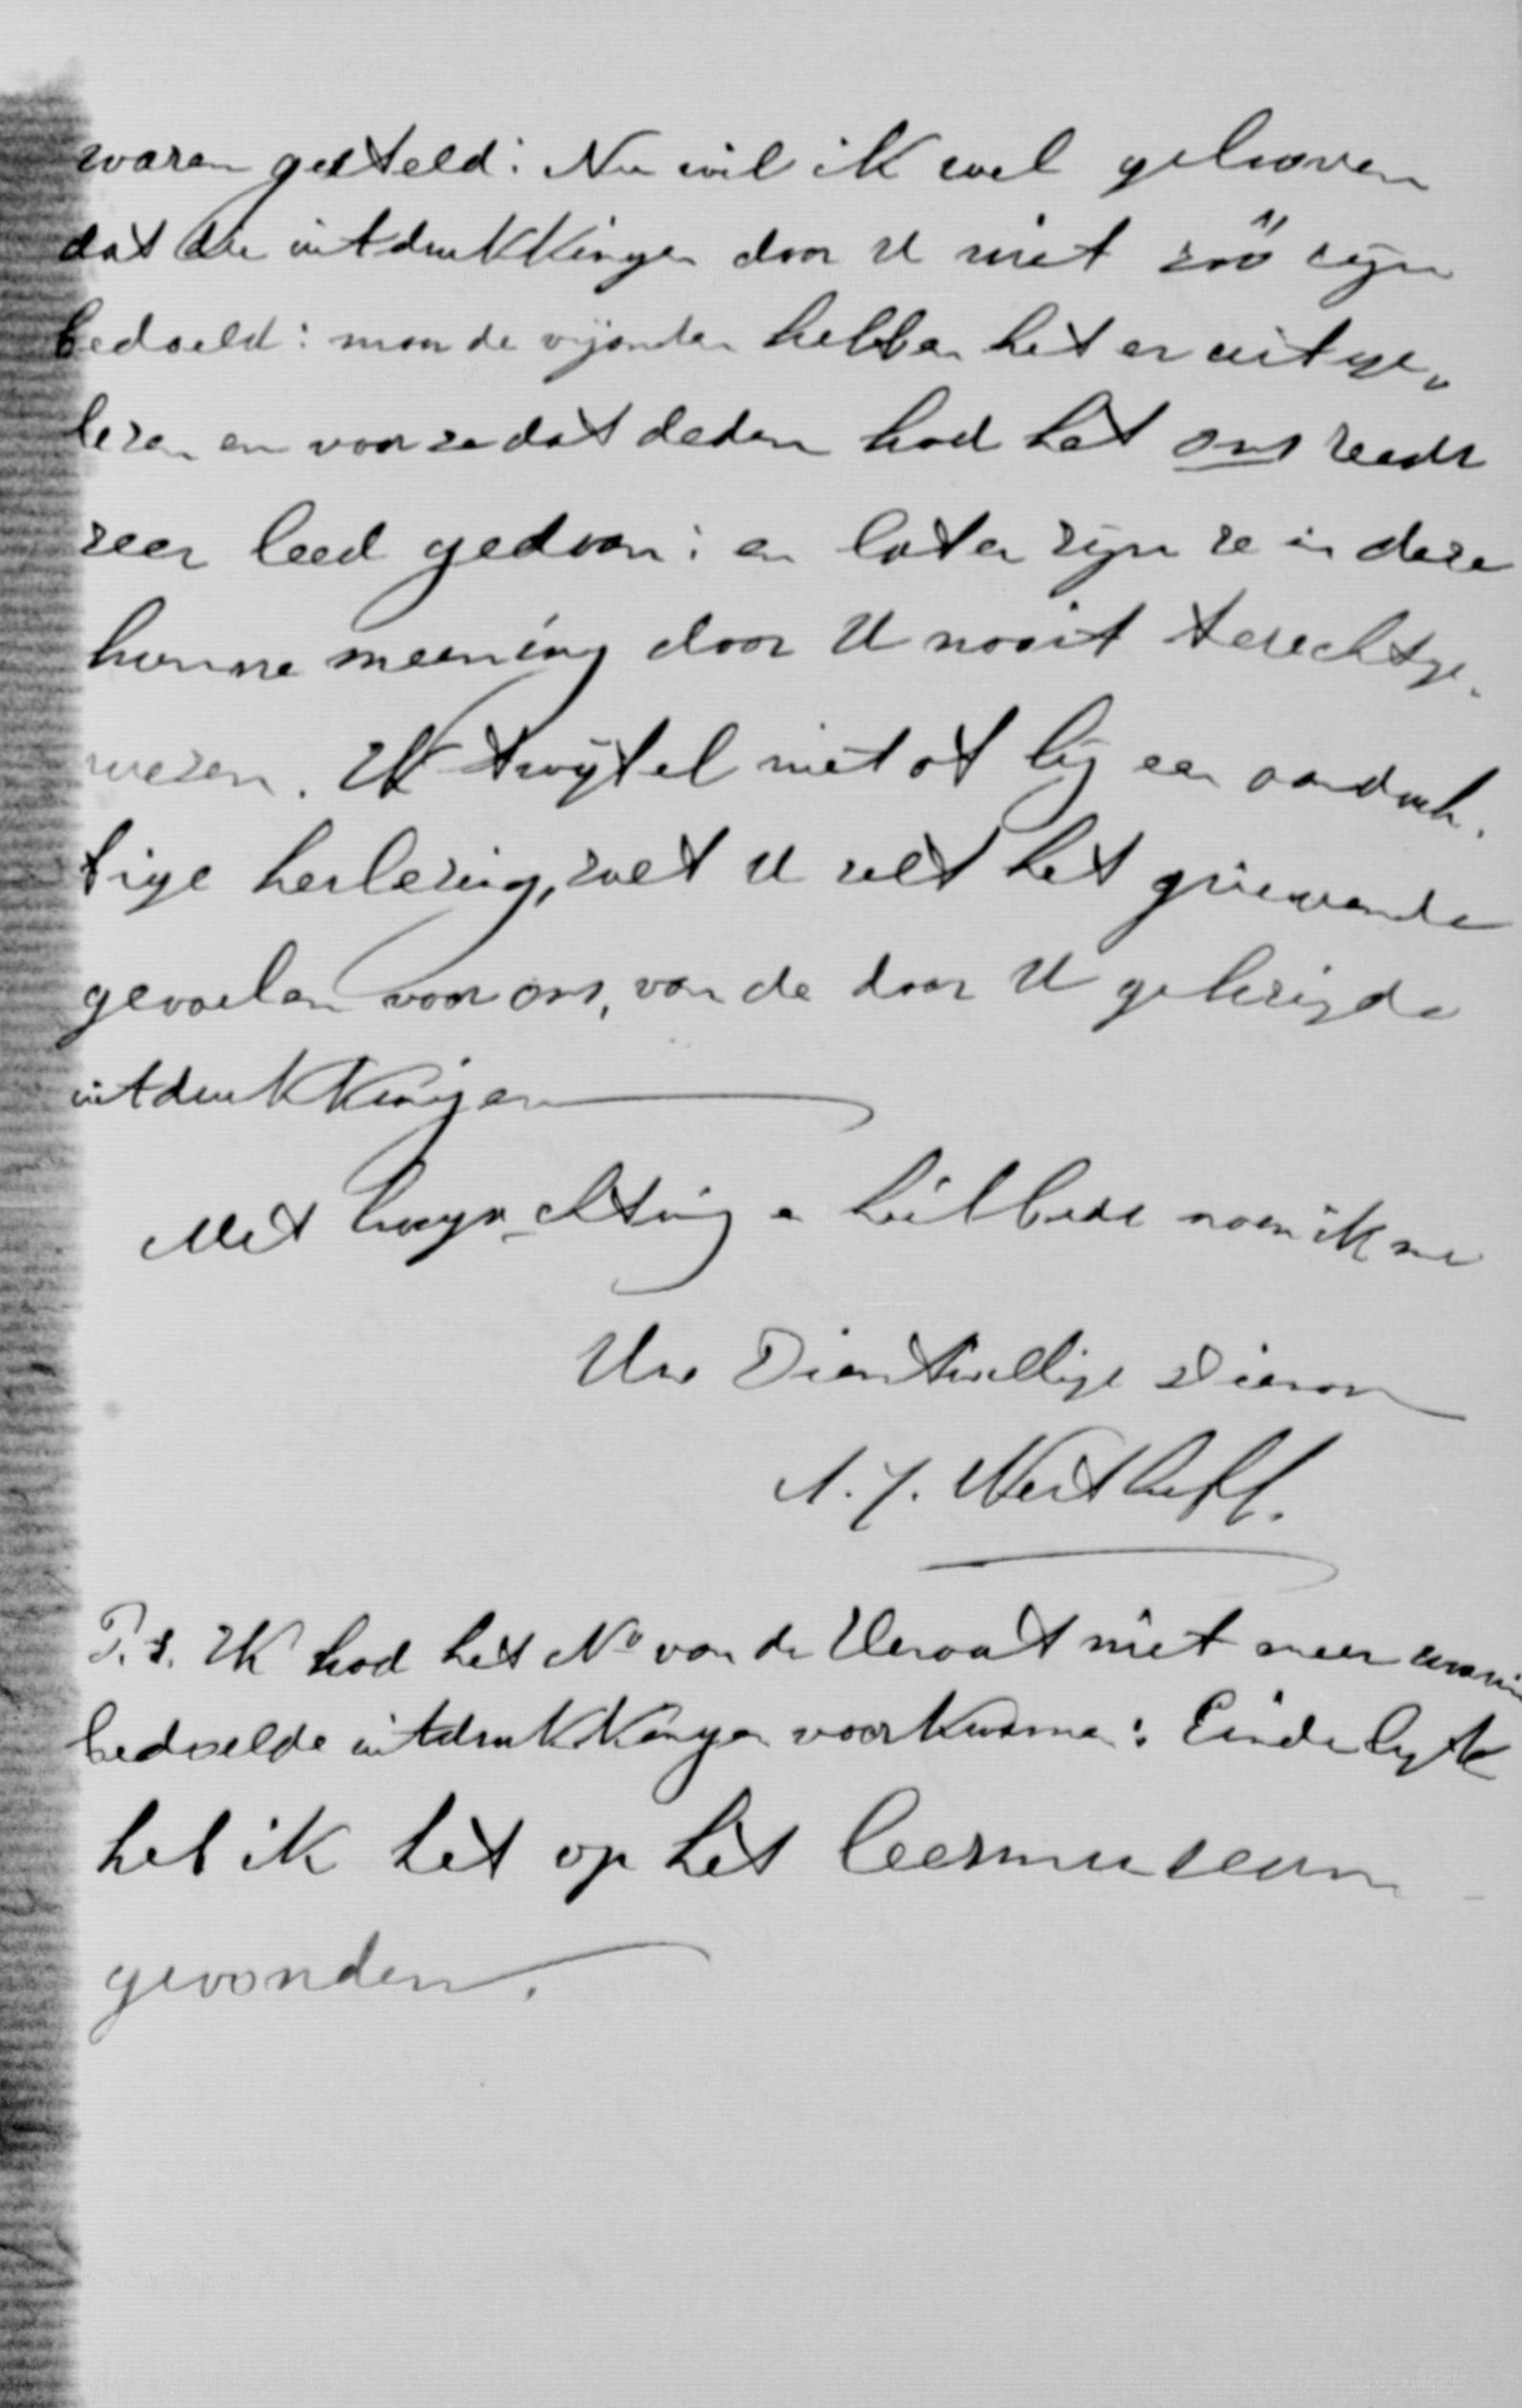 waren gesteld: Nu wil ik wel gelooven
dat die uitdrukkingen door U niet zóó zijn
bedoeld: maar de vijanden hebben het er uitge„
lezen en voor ze dat deden had het ons reeds
zeer leed gedaan: en later zijn ze in deze
hunne meening door U nooit terechtge„
wezen. Ik twijfel niet of bij een aandach„
tige herlezing, voelt U zelf het grievende
gevoelen voor ons, van de door U gebezigde
uitdrukkingen
Met hoogachting en heilbede noem ik me
Uw Dienstwillige Dienaar
P.S. Ik had het No van de Heraut niet meer waarin
bedoelde uitdrukkingen voorkwamen: Eindelijk
heb ik het op het leesmuseum
gevonden.